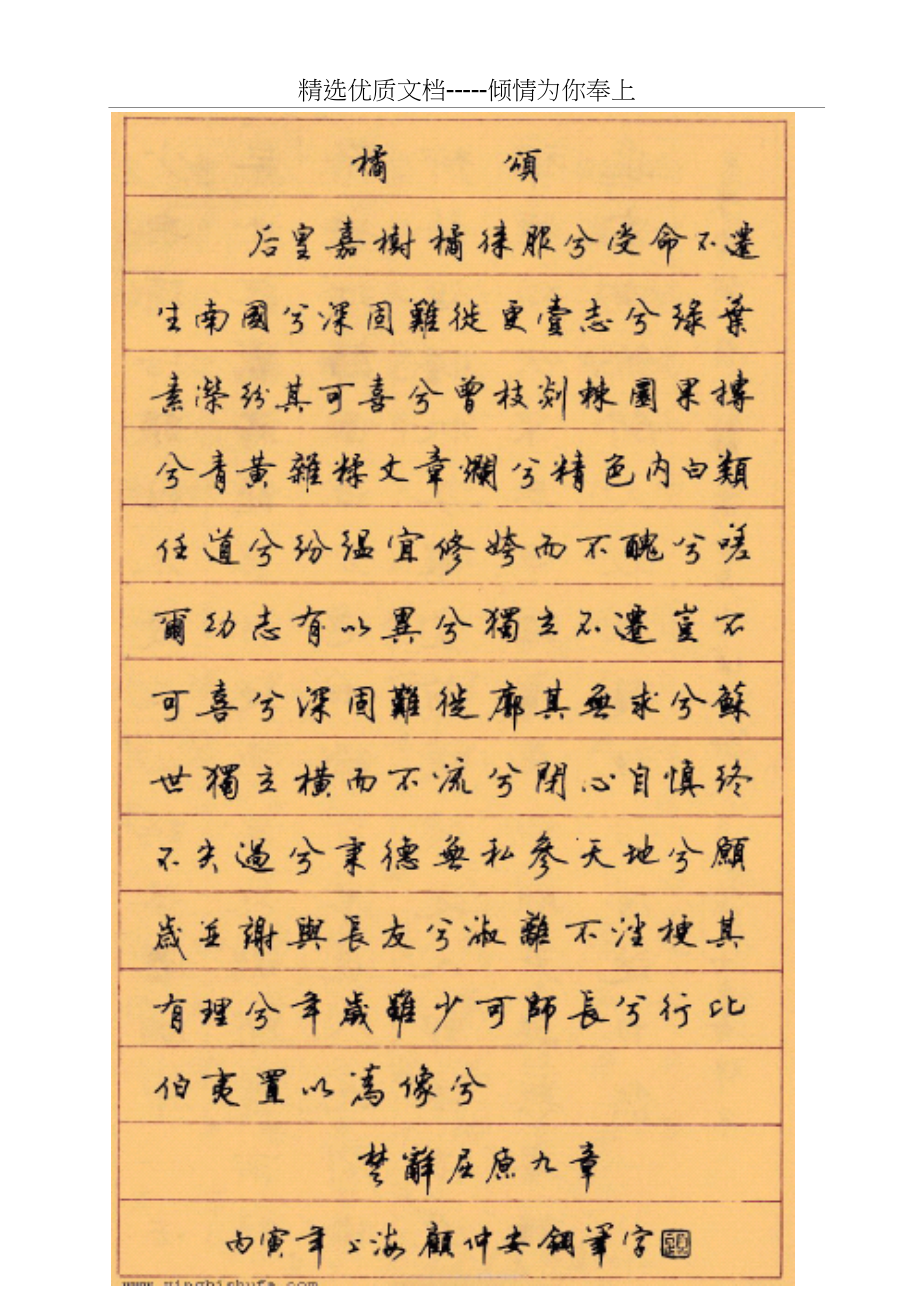 精选优质文档-----倾情为你奉上
橘 頌
后皇嘉樹橘徕服兮受命不遷
生南國兮深固難徙更壹志兮綠葉
素榮紛其可喜兮曾枝剡棘圜果摶
兮青黃雜糅文章爛兮精色内白類
任道兮紛緼宜修姱而不醜兮嗟
爾幼志有以異兮獨立不遷豈不
可喜兮深固難徙廓其無求兮蘇
世獨立橫而不流兮閉心自慎終
不失過兮秉德無私參天地兮願
歲並謝與長友兮淑離不淫梗其
有理兮年歲雖少可師長兮行比
伯夷置以為像兮
楚辭屈原九章
丙寅年上海顧仲安鋼筆字